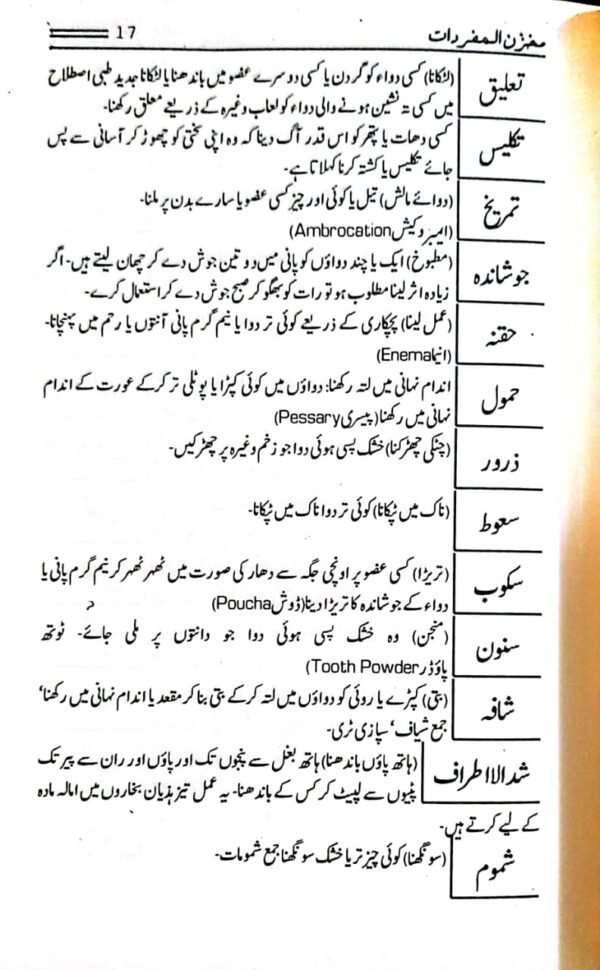 مخزن المفردات 17
تعلیق
(لٹکانا) کسی دواء کو گردن یا کسی دوسرے عضو میں باندھنا یا لٹکانا جدید طبی اصطلاح
میں کسی تہ نشین ہونے والی دواء کو لعاب وغیرہ کے ذریعے معلق رکھنا۔
تکلیس
کسی دھات یا پتھر کو اس قدر آگ دینا کہ وہ اپنی سختی کو چھوڑ کر آسانی سے پس
جائے تکلیس یا کشتہ کرنا کہلاتا ہے۔
تمریخ
(دوائے مالش) تیل یا کوئی اور چیز کسی عضو یا سارے بدن پر ملنا۔
(ایمبروکیشن Ambrocation)
جوشاندہ
(مطبوخ) ایک یا چند دواؤں کو پانی میں دو تین جوش دے کر چھان لیتے ہیں۔ اگر
زیادہ اثر لینا مطلوب ہو تو رات کو بھگو کر صبح جوش دے کر استعمال کرے۔
حقنہ
(عمل لینا) پچکاری کے ذریعے کوئی تر دوا یا نیم گرم پانی آنتوں یا رحم میں پہنچانا۔
(انیما Enema)
حمول
اندام نہانی میں لتہ رکھنا: دواؤں میں کوئی کپڑا یا پوٹلی تر کرکے عورت کے اندام
نہانی میں رکھنا (پیسری Pessary)
ذرور
(چٹکی چھڑکنا) خشک پسی ہوئی دوا جو زخم وغیرہ پر چھڑکیں۔
سعوط
(ناک میں ٹپکانا) کوئی تر دوا ناک میں ٹپکانا۔
سکوب
(تریڑا) کسی عضو پر اونچی جگہ سے دھار کی صورت میں ٹھہر ٹھہر کر نیم گرم پانی یا
دواء کے جوشاندہ کا تریڑا دینا (ڈوش Poucha)
سنون
(منجن) وہ خشک پسی ہوئی دوا جو دانتوں پر ملی جائے۔ ٹوتھ
پاؤڈر Tooth Powder)
شافہ
(بتی) کپڑے یا روئی کو دواؤں میں لتہ کرکے بتی بنا کر مقعد یا اندام نہانی میں رکھنا‘
جمع شیاف‘ سپازی ٹری۔
شد الااطراف
(ہاتھ پاؤں باندھنا) ہاتھ بغل سے پنجوں تک اور پاؤں اور ران سے پیر تک
پٹیوں سے لپیٹ کر کس کے باندھنا۔ یہ عمل تیز ہذیان بخاروں میں امالہ مادہ
کے لیے کرتے ہیں۔
شموم
(سونگھنا) کوئی چیز تر یا خشک سونگھنا جمع شمومات۔